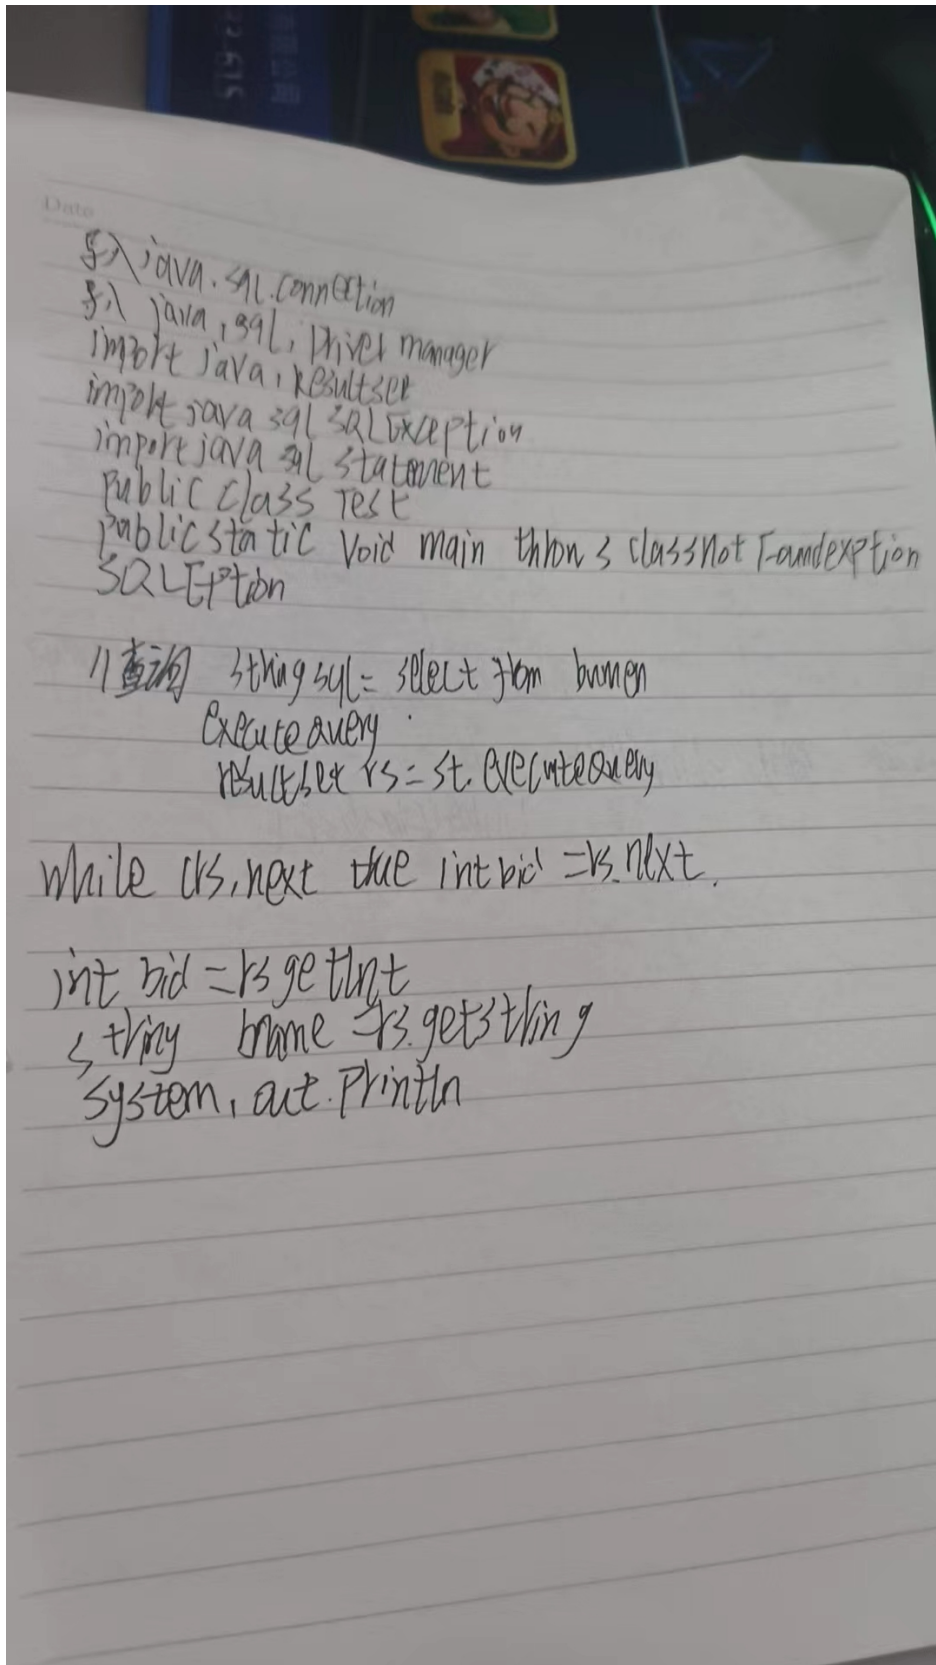 Date
导入java.sql.connection
导入 java,sql,Driver manager
import java,resultset
import java sql SQLException
import java sql statement
public class Test
public static void main throws classnot Foundexption
SQLExption
//查询 string sql= select from bumen
executequery
resultset rs=st.executeQuery
while (rs,next true int bid =rs.next.
int bid =rs getInt
string bname =rs.getstring
system,out.println